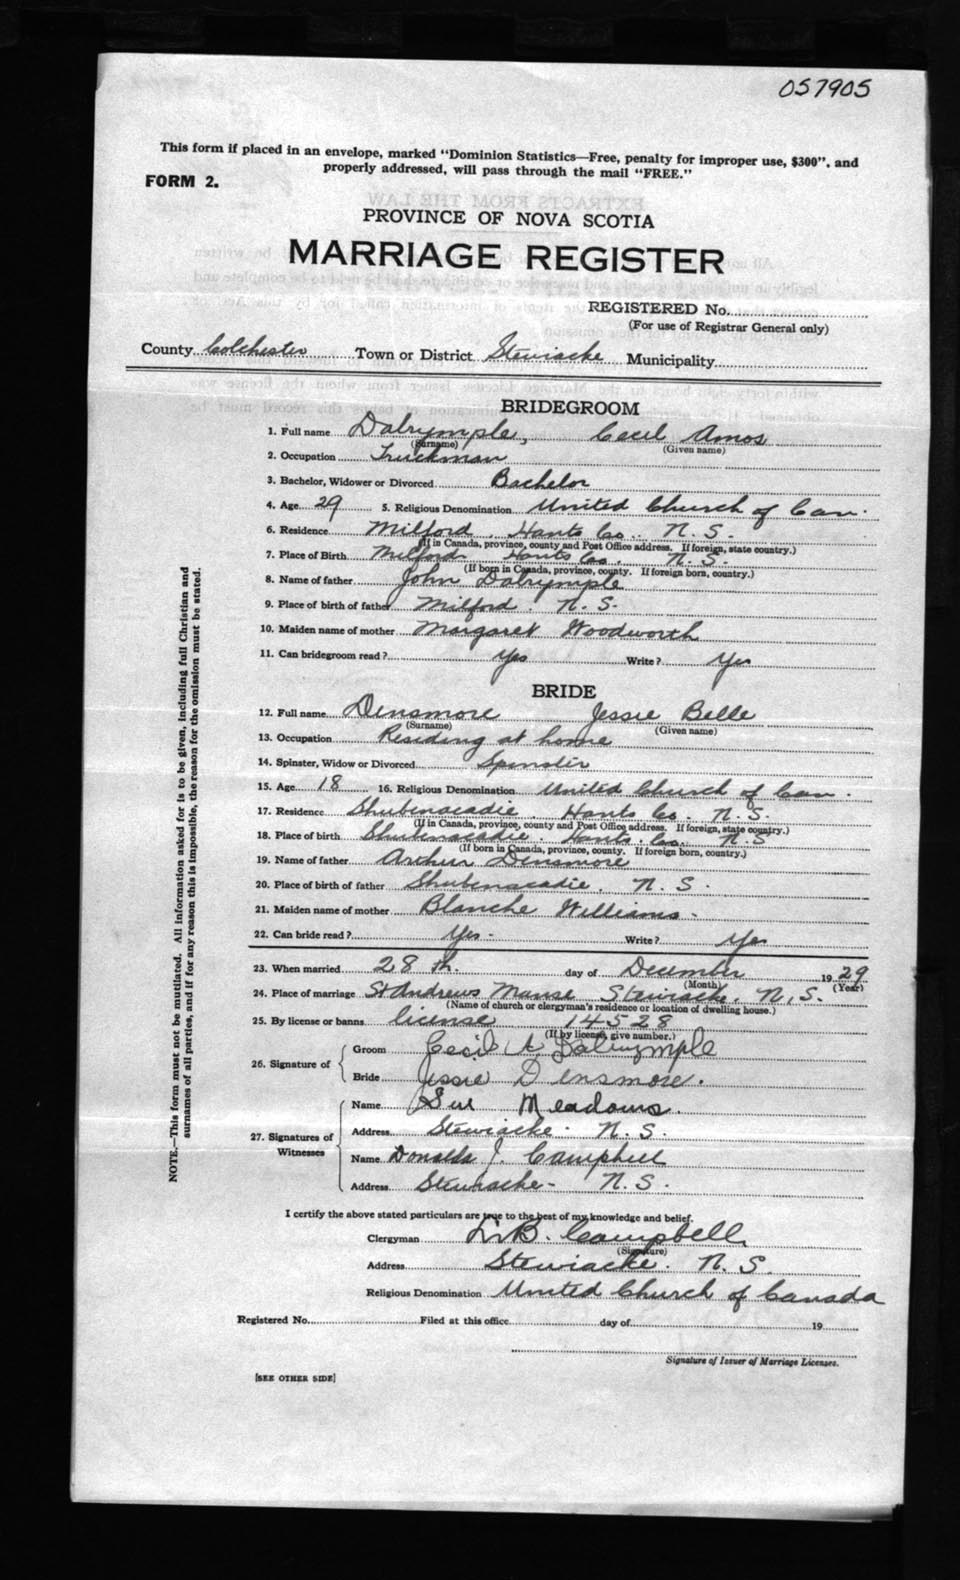 057905
This form if placed in an envelope, marked "Dominion Statistics—Free, penalty for improper use, $300", and
properly addressed, will pass through the mail "FREE."
FORM 2.
PROVINCE OF NOVA SCOTIA
MARRIAGE REGISTER
REGISTERED No.
(For use of Registrar General only)
County Colchester Town or District Stewiacke Municipality
BRIDEGROOM
1. Full name Dalrymple, Cecil Amos
(Surname) (Given name)
2. Occupation Truckman
3. Bachelor, Widower or Divorced Bachelor
4. Age 29 5. Religious Denomination United Church of Can.
6. Residence Milford, Hants Co. N. S.
(If in Canada, province, county and Post Office address. If foreign, state country.)
7. Place of Birth Milford Hants Co. N. S.
(If born in Canada, province, county. If foreign born, country.)
8. Name of father John Dalrymple
9. Place of birth of father Milford. N. S.
10. Maiden name of mother Margaret Woodworth
11. Can bridegroom read? Yes Write? Yes
BRIDE
12. Full name Densmore Jessie Belle
(Surname) (Given name)
13. Occupation Residing at home
14. Spinster, Widow or Divorced Spinster
15. Age 18 16. Religious Denomination United Church of Can.
17. Residence Shubenacadie. Hants Co. N. S.
(If in Canada, province, county and Post Office address. If foreign, state country.)
18. Place of birth Shubenacadie. Hants. Co. N. S
(If born in Canada, province, county. If foreign born, country.)
19. Name of father Arthur Densmore
20. Place of birth of father Shubenacadie. N. S.
21. Maiden name of mother Blanche Williams.
22. Can bride read? Yes. Write? Yes
23. When married 28th. day of December 1929
(Month) (Year)
24. Place of marriage St Andrews Manse Stewiacke, N. S.
(Name of church or clergyman's residence or location of dwelling house.)
25. By license or banns license 14528
(If by license, give number.)
26. Signature of Groom Cecil A Dalrymple
Bride Jessie Densmore.
27. Signatures of Witnesses
Name Meadows.
Address Stewiacke. N. S.
Name Donalda J. Campbell
Address Stewiacke- N. S.
I certify the above stated particulars are true to the best of my knowledge and belief.
Clergyman Campbell
(Signature)
Address Stewiacke. N. S.
Religious Denomination United Church of Canada
Registered No. Filed at this office day of 19
Signature of Issuer of Marriage Licenses.
[SEE OTHER SIDE]
NOTE.—This form must not be mutilated. All information asked for is to be given, including full Christian and
surnames of all parties, and if for any reason this is impossible, the reason for the omission must be stated.